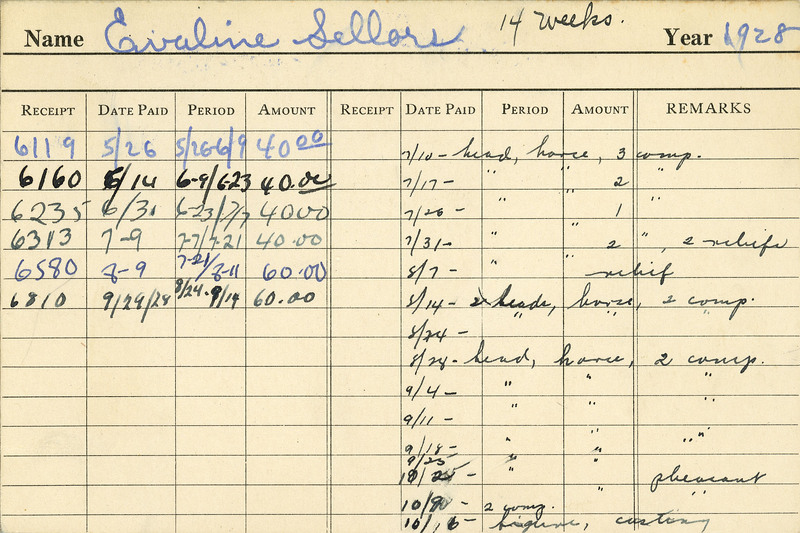 Name Evaline Sellors 14 weeks. Year 1928
RECEIPT DATE PAID PERIOD AMOUNT RECEIPT DATE PAID PERIOD AMOUNT REMARKS
6119 5/26 5/26-6/9 40 00 7/10 - head, horse, 3 comp.
6160 6/14 6-9/6-23 40.00 7/17 - " " 2 "
6235 6/30 6-23/7/7 40 00 7/26 - " " 1 "
6313 7-9 7-7/7-21 40.00 7/31 - " " 2 ", 2 reliefs
6580 8-9 7-21/8-11 60.00 8/7 - " relief
6810 9/29/28 8/24-9/14 60.00 8/14 - 2 heads, horse, 2 comp.
8/24 - " "
8/28 - head, horse, 2 comp.
9/4 - " " "
9/11 - " " "
9/18 - " " "
9/25 " "
10/2 - " pheasant
10/9 - 2 comp.
10/16 - figure, casting